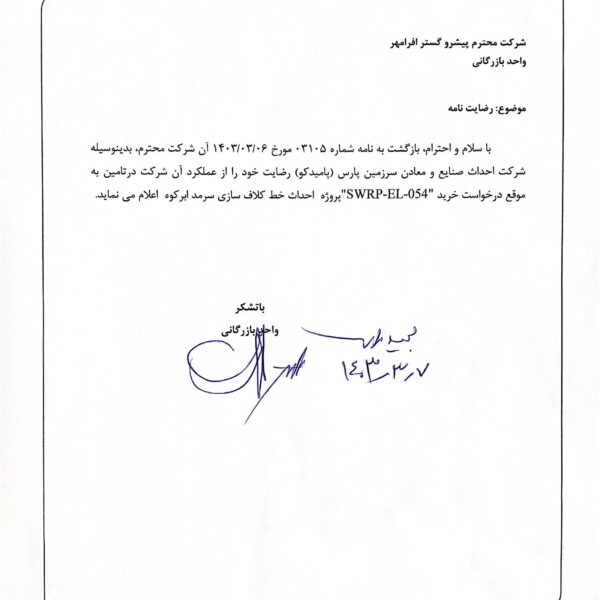 شرکت محترم پیشرو گستر افرامهر
واحد بازرگانی
موضوع: رضایت نامه
با سلام و احترام، بازگشت به نامه شماره ۰۳۱۰۵ مورخ ۱۴۰۳/۰۳/۰۶ آن شرکت محترم، بدینوسیله
شرکت احداث صنایع و معادن سرزمین پارس (پامیدکو) رضایت خود را از عملکرد آن شرکت درتامین به
موقع درخواست خرید "SWRP-EL-054"پروژه احداث خط کلاف سازی سرمد ابرکوه اعلام می نماید.
باتشکر
واحد بازرگانی
۱۴۰۳/۳/۷